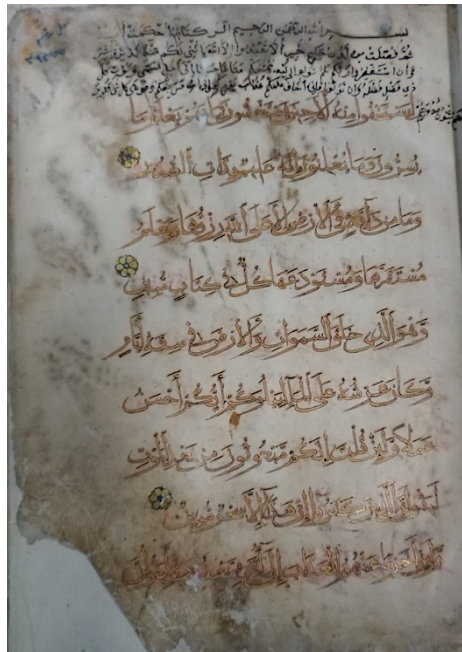 بسم الله الرحمن الرحيم الر كتاب احكمت ايا
ثم فصلت من لدن حكيم خبير الا تعبدوا الا الله انني لكم منه نذير وبشير
وان استغفروا ربكم ثم توبوا اليه يمتعكم متاعا حسنا الى اجل مسمى ويؤت كل
ذي فضل فضله وان تولوا فاني اخاف عليكم عذاب يوم كبير الى الله مرجعكم وهو على كل شيء قدير
ليستخفوا منه ألا حين يستغشون ثيابهم يعلم ما
يسرون وما يعلنون إنه عليم بذات الصدور
وما من دابة في الأرض إلا على الله رزقها ويعلم
مستقرها ومستودعها كل في كتاب مبين
وهو الذي خلق السموات والأرض في ستة أيام
وكان عرشه على الماء ليبلوكم أيكم أحسن
عملا ولئن قلت إنكم مبعوثون من بعد الموت
ليقولن الذين كفروا إن هذا إلا سحر مبين
ولئن أخرنا عنهم العذاب إلى أمة معدودة ليقولن